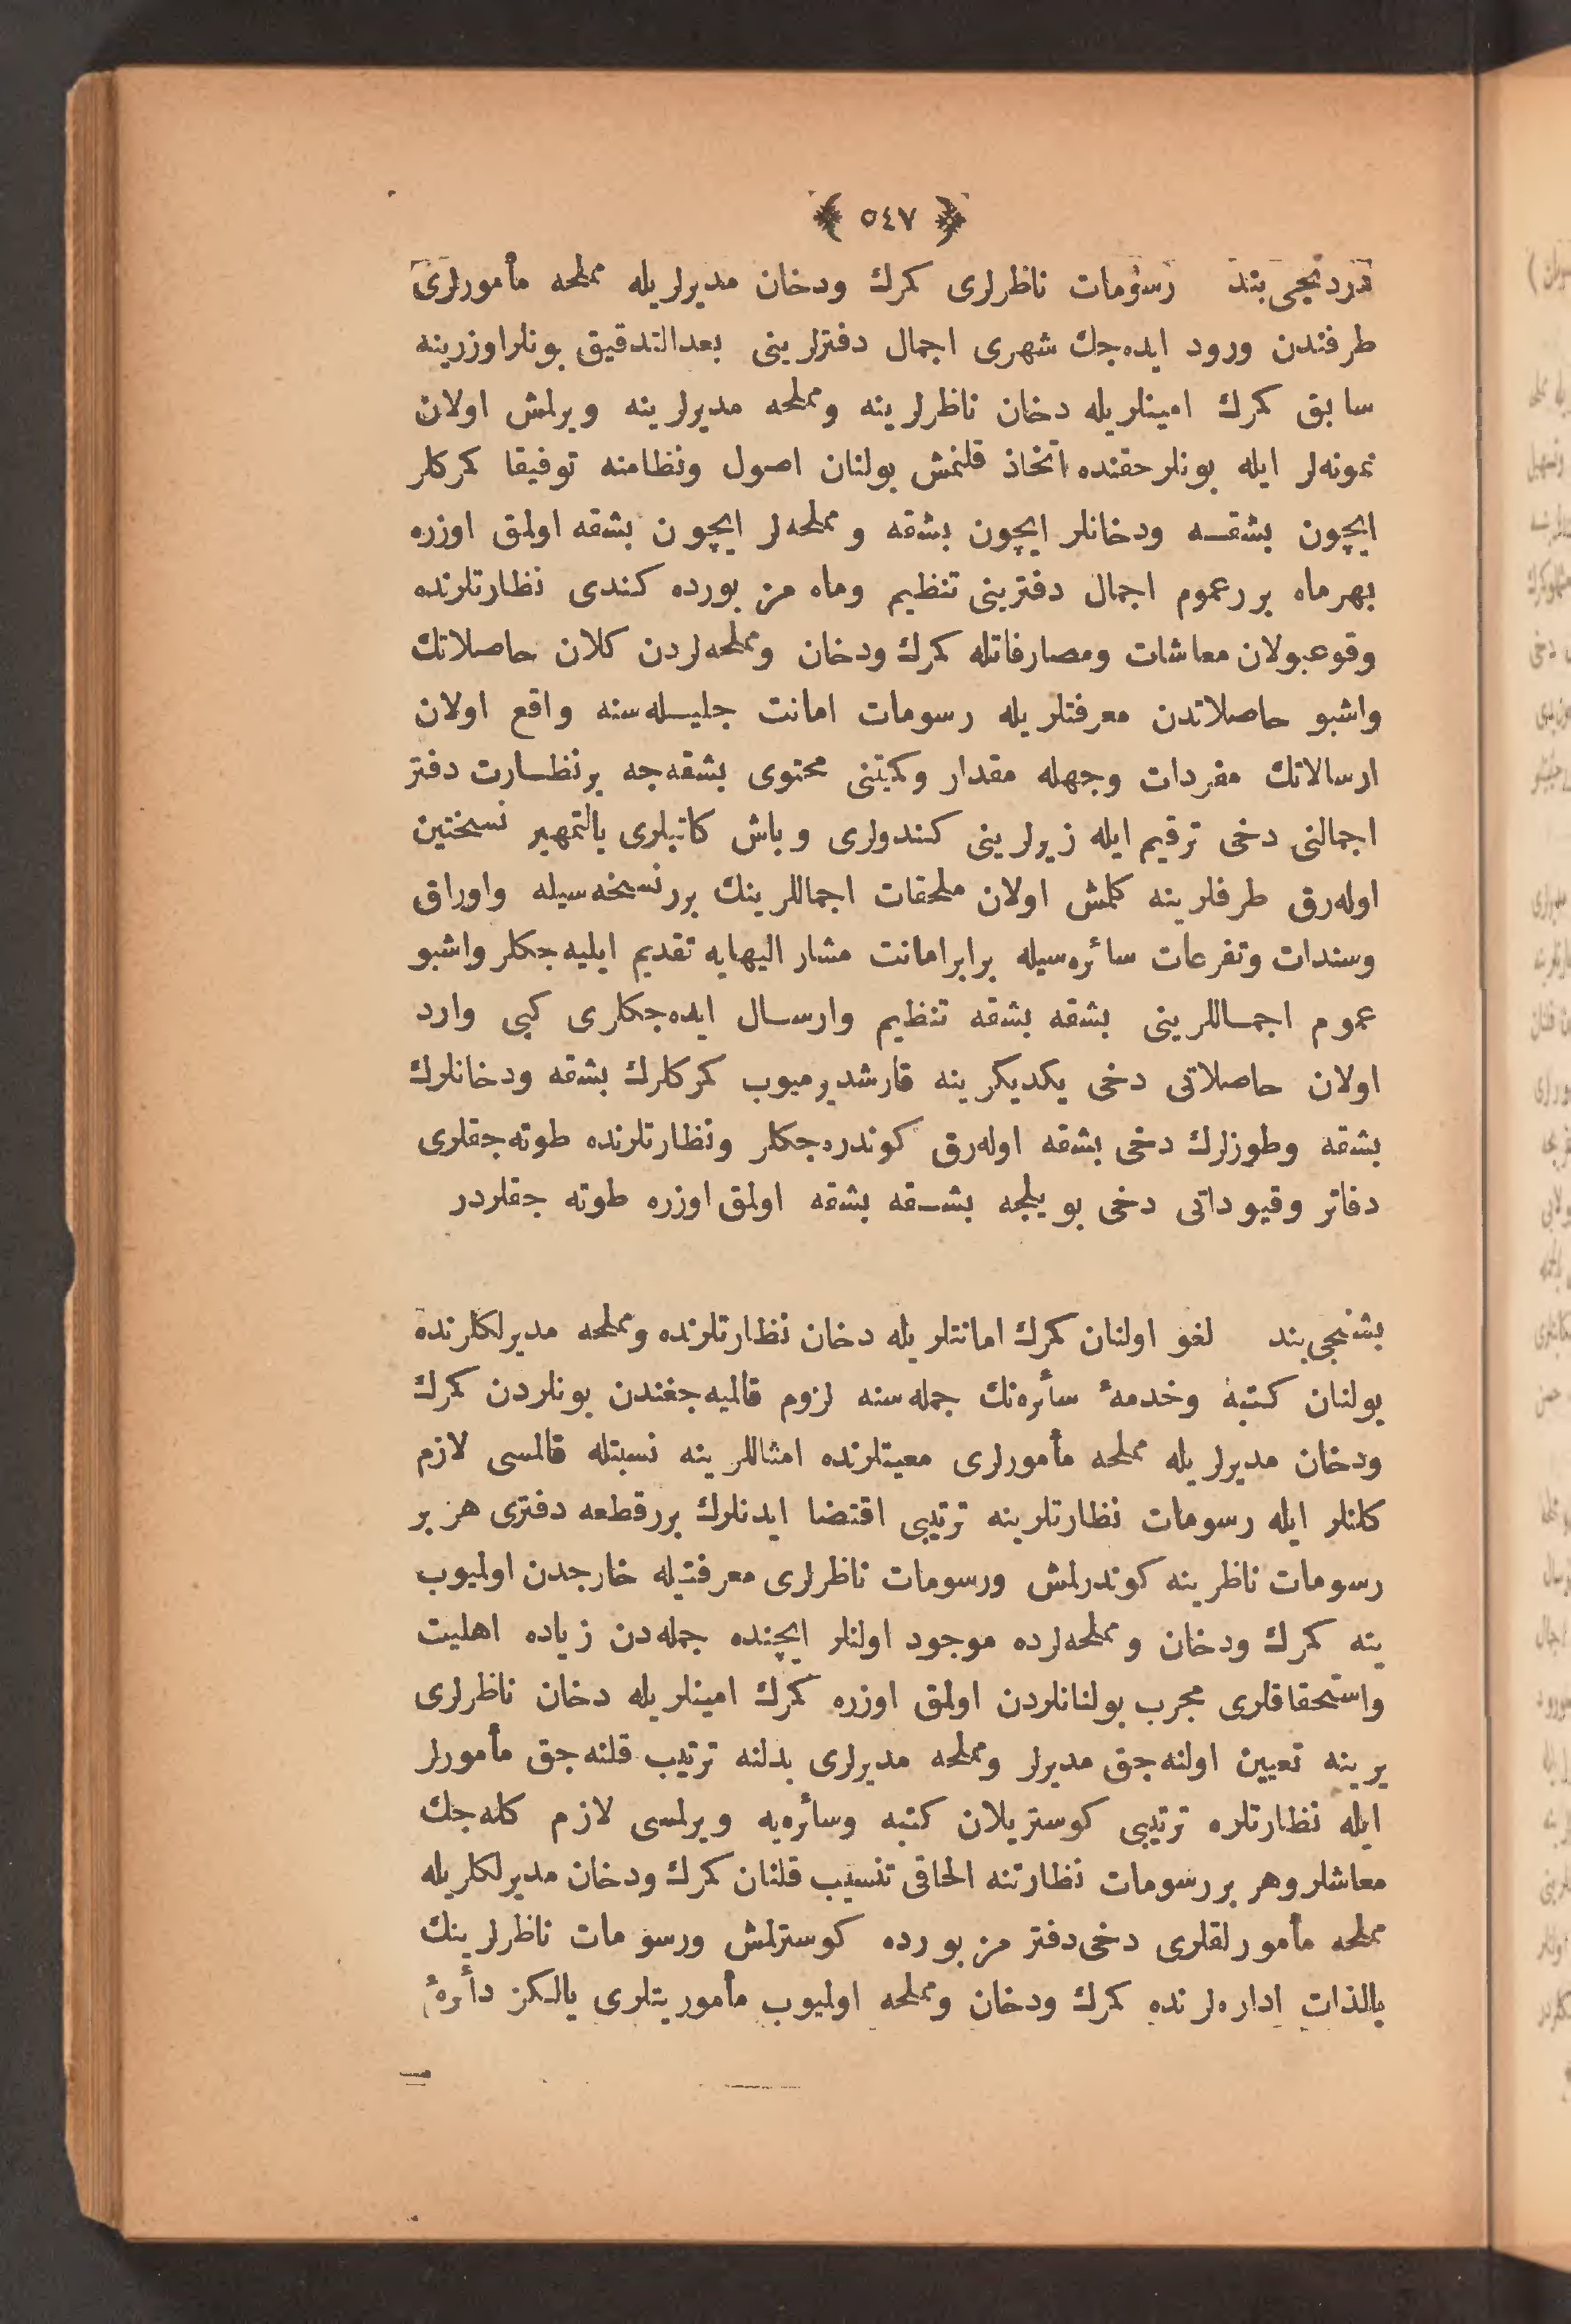 ﴿ ٥٤٧ ﴾
دردنجى بند رسومات ناظرلرى كمرك ودخان مديرلريله مملحه مأمورلرى
طرفندن ورود ايده جك شهرى اجمال دفترلرينى بعدالتدقيق بونلراوزرينه
سابق كمرك امينلريله دخان ناظرلرينه ومملحه مديرلرينه ويرلمش اولان
نمونه لر ايله بونلرحقنده اتخاذ قلنمش بولنان اصول ونظامنه توفيقا كمركلر
ايچون بشقه ودخانلر ايچون بشقه و مملحه لر ايچون بشقه اولمق اوزره
بهرماه بررعموم اجمال دفترينى تنظيم وماه مزبورده كندى نظارتلرنده
وقوعبولان معاشات ومصارفاتله كمرك ودخان ومملحه لردن كلان حاصلاتك
واشبو حاصلاتدن معرفتلريله رسومات امانت جليله سنه واقع اولان
ارسالاتك مفردات وجهله مقدار وكميتنى محتوى بشقه جه برنظارت دفتر
اجمالنى دخى ترقيم ايله زيرلرينى كندولرى وباش كاتبلرى بالتمهير نسختين
اوله رق طرفلرينه كلمش اولان ملحقات اجماللرينك بررنسخه سيله واوراق
وسندات وتفرعات سائره سيله برابرامانت مشار اليهايه تقديم ايليه جكلر واشبو
عموم اجماللرينى بشقه بشقه تنظيم وارسال ايده جكلرى كبى وارد
اولان حاصلاتى دخى يكديكرينه قارشديرميوب كمركلرك بشقه ودخانلرك
بشقه وطوزلرك دخى بشقه اوله رق كوندره جكلر ونظارتلرنده طوته جقلرى
دفاتر وقيوداتى دخى بويلجه بشقه بشقه اولمق اوزره طوته جقلردر
بشنجى بند لغو اولنان كمرك امانتلريله دخان نظارتلرنده ومملحه مديرلكلرنده
بولنان كتبه وخدمهٔ سأره نك جمله سنه لزوم قالميه جغندن بونلردن كمرك
ودخان مديرلريله مملحه مأمورلرى معيتلرنده امثاللرينه نسبتله قالمسى لازم
كلنلر ايله رسومات نظارتلرينه ترتيبى اقتضا ايدنلرك بررقطعه دفترى هربر
رسومات ناظرينه كوندرلمش ورسومات ناظرلرى معرفتيله خارجدن اولميوب
ينه كمرك ودخان ومملحه لرده موجود اولنلر ايچنده جمله دن زياده اهليت
واستحقاقلرى مجرب بولنانلردن اولمق اوزره كمرك امينلريله دخان ناظرلرى
يرينه تعيين اولنه جق مديرلر ومملحه مديرلرى بدلنه ترتيب قلنه جق مأمورلر
ايله نظارتلره ترتيبى كوستريلان كتبه وسأره يه ويرلمسى لازم كله جك
معاشلر وهر بررسومات نظارتنه الحاقى تنسيب قلنان كمرك ودخان مديرلكلريله
مملحه مأمورلقلرى دخى دفتر مزبورده كوسترلمش ورسومات ناظرلرينك
بالذات اداره لرنده كمرك ودخان ومملحه اولميوب مأموريتلرى يالكز دأرهٔ